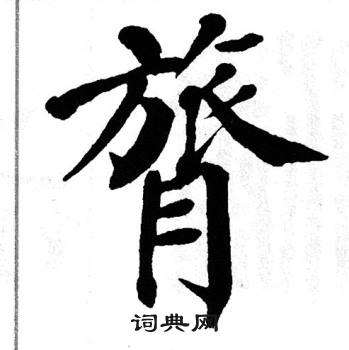 膂
词典网